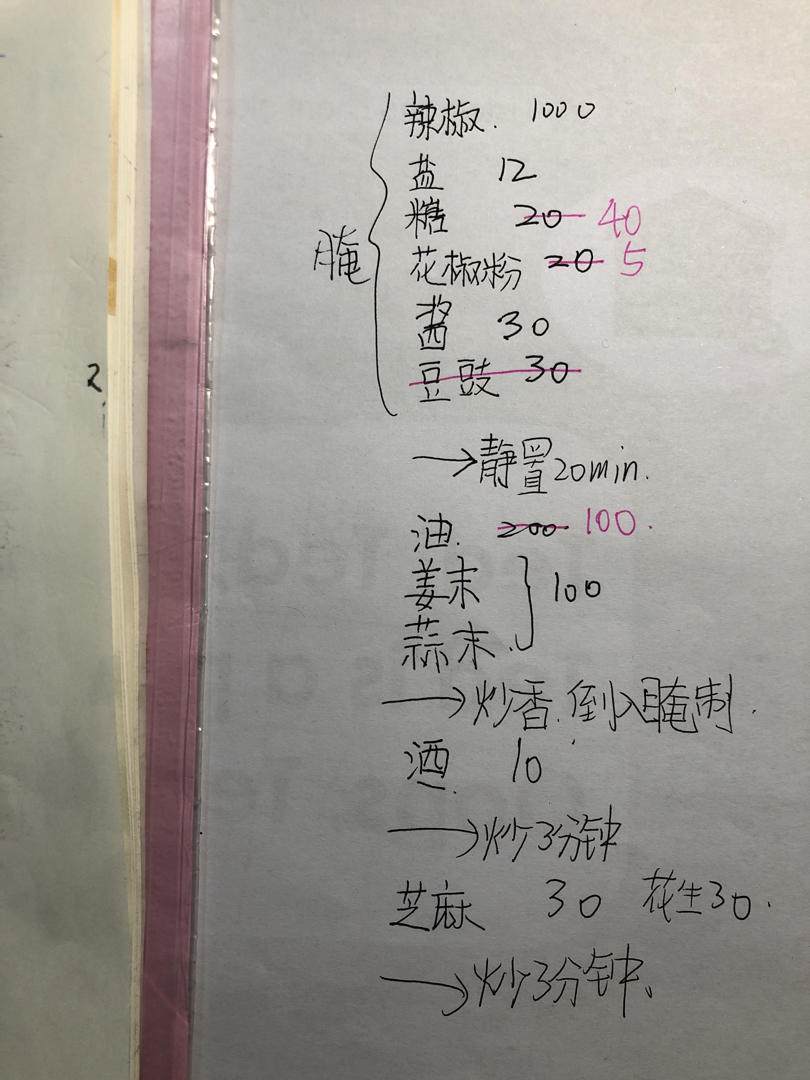 辣椒. 1000
盐 12
糖 20 40
腌
花椒粉 20 5
酱 30
豆豉 30
2
→静置20min.
油. 200 100.
姜末
100
蒜末.
→炒香.倒入腌制.
酒. 10
→炒3分钟
芝麻 30 花生30.
→炒3分钟、